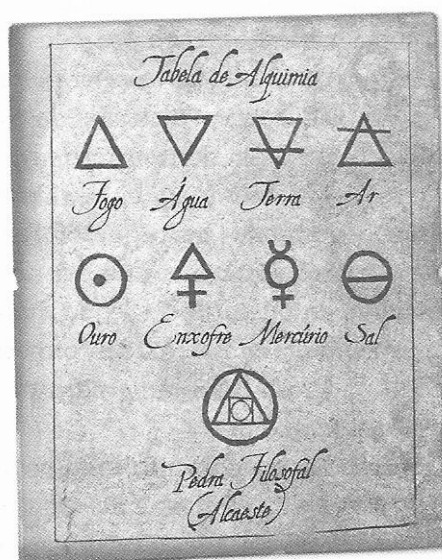 Tabela de Alquimia
Fogo Água Terra Ar
Ouro Enxofre Mercúrio Sal
Pedra Filosofal
(Alcaeste)